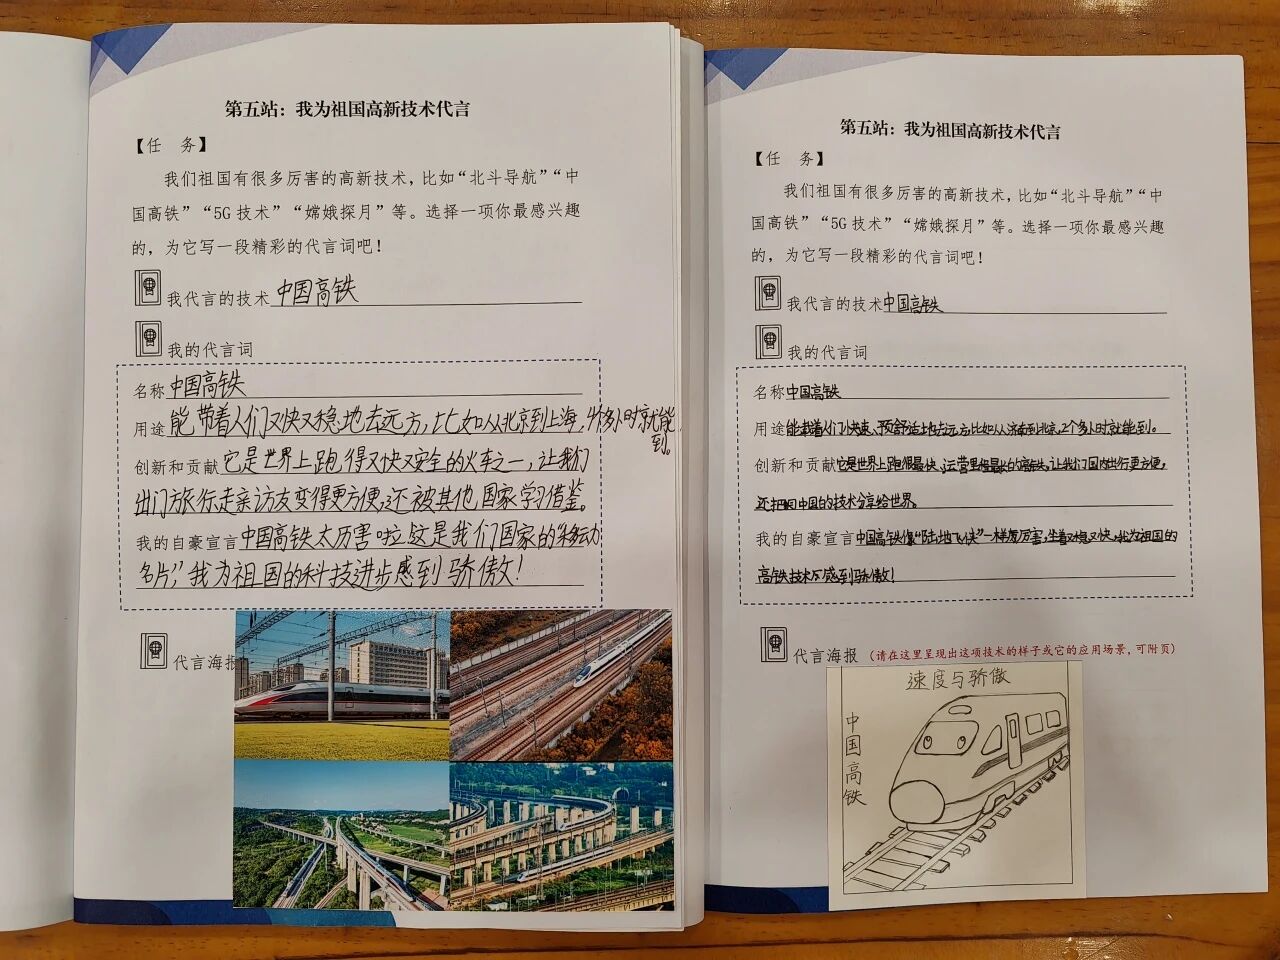 第五站：我为祖国高新技术代言
【任 务】
我们祖国有很多厉害的高新技术，比如“北斗导航”“中
国高铁”“5G 技术”“嫦娥探月”等。选择一项你最感兴趣
的，为它写一段精彩的代言词吧！
我代言的技术 中国高铁
我的代言词
名称 中国高铁
用途 能带着人们又快又稳地去远方，比如从北京到上海，个多小时就能
到。
创新和贡献 它是世界上跑得又快又安全的火车之一，让我们
出门旅行走亲访友变得更方便，还被其他国家学习借鉴。
我的自豪宣言 中国高铁太厉害啦，这是我们国家的“移动
名片”，我为祖国的科技进步感到骄傲！
代言海报
第五站：我为祖国高新技术代言
【任 务】
我们祖国有很多厉害的高新技术，比如“北斗导航”“中
国高铁”“5G 技术”“嫦娥探月”等。选择一项你最感兴趣
的，为它写一段精彩的代言词吧！
我代言的技术 中国高铁
我的代言词
名称 中国高铁
用途 能载着人们快速、舒适地去远方，比如从到北京，2个多小时就能到。
创新和贡献 它是世界上跑得最快、运营里程最长的高铁，让我们国内出行更方便，
还把中国的技术分享给世界。
我的自豪宣言 中国高铁像“陆地飞侠”一样厉害，坐着又稳又快，我为祖国的
高铁技术感到骄傲！
代言海报（请在这里呈现出这项技术的样子或它的应用场景，可附页）
速度与骄傲
中国高铁